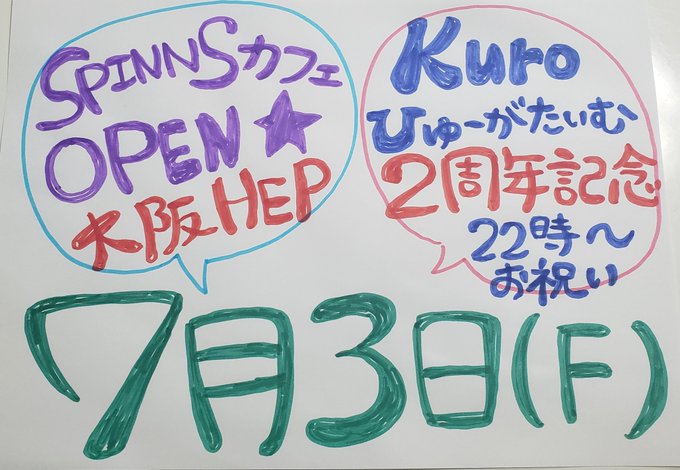 SPINNSカフェ
OPEN★
大阪HEP
Kuro
ひゅーがたいむ
2周年記念
22時〜
お祝い
7月3日(F)